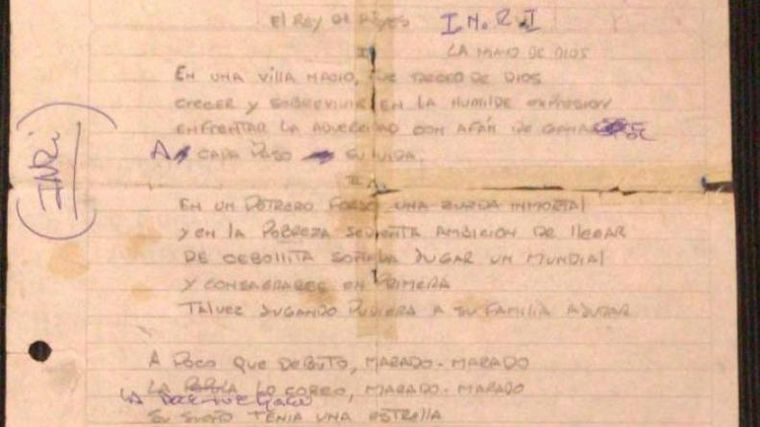 El Rey de Reyes I.N.R.I
I
LA MANO DE DIOS
EN UNA VILLA NACIO, FUE DESEO DE DIOS
CRECER Y SOBREVIVIR EN LA HUMILDE EXPRESION
ENFRENTAR LA ADVERSIDAD CON AFÁN DE GANARSE
A CADA PASO SU VIDA.
II
EN UN POTRERO FORJO UNA ZURDA INMORTAL
Y EN LA POBREZA SEDIENTA AMBICION DE LLEGAR
DE CEBOLLITA SOÑABA JUGAR UN MUNDIAL
Y CONSAGRARSE EN PRIMERA
TALVEZ JUGANDO PUDIERA A SU FAMILIA AYUDAR
A POCO QUE DEBUTO, MARADO-MARADO
LA COREO, MARADO-MARADO
LA
SU SUEÑO TENIA UNA ESTRELLA
(INRi)